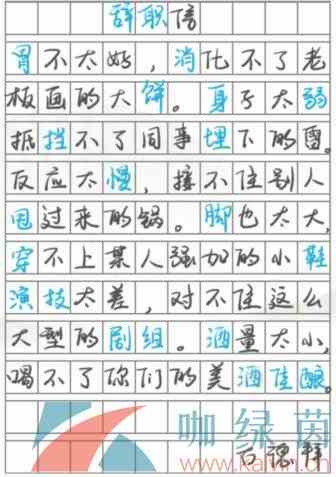 辞职信
胃不太好，消化不了老
板画的大饼。身子太弱
抵挡不了同事埋下的雷。
反应太慢，接不住别人
甩过来的锅。脚也太大，
穿不上某人强加的小鞋
演技太差，对不住这么
大型的剧组。酒量太小，
喝不了你们的美酒佳酿。
咖绿茵